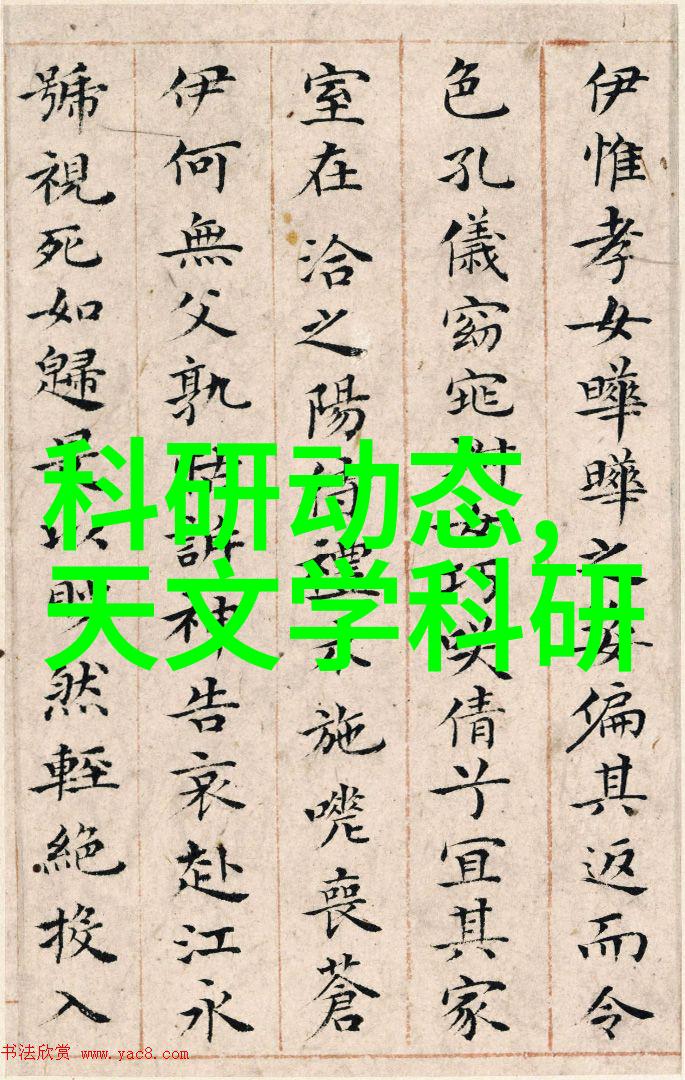 伊惟孝女曄曄之姿偏其返而令
色孔儀窈窕淑女巧咲倩兮宜其家
室在洽之陽待禮未施嗟喪蒼
伊何無父孰怙訴神告哀赴江永
號視死如歸是以眇然輕絕投入
科研动态,
天文学科研
书法欣赏 www.yac8.com